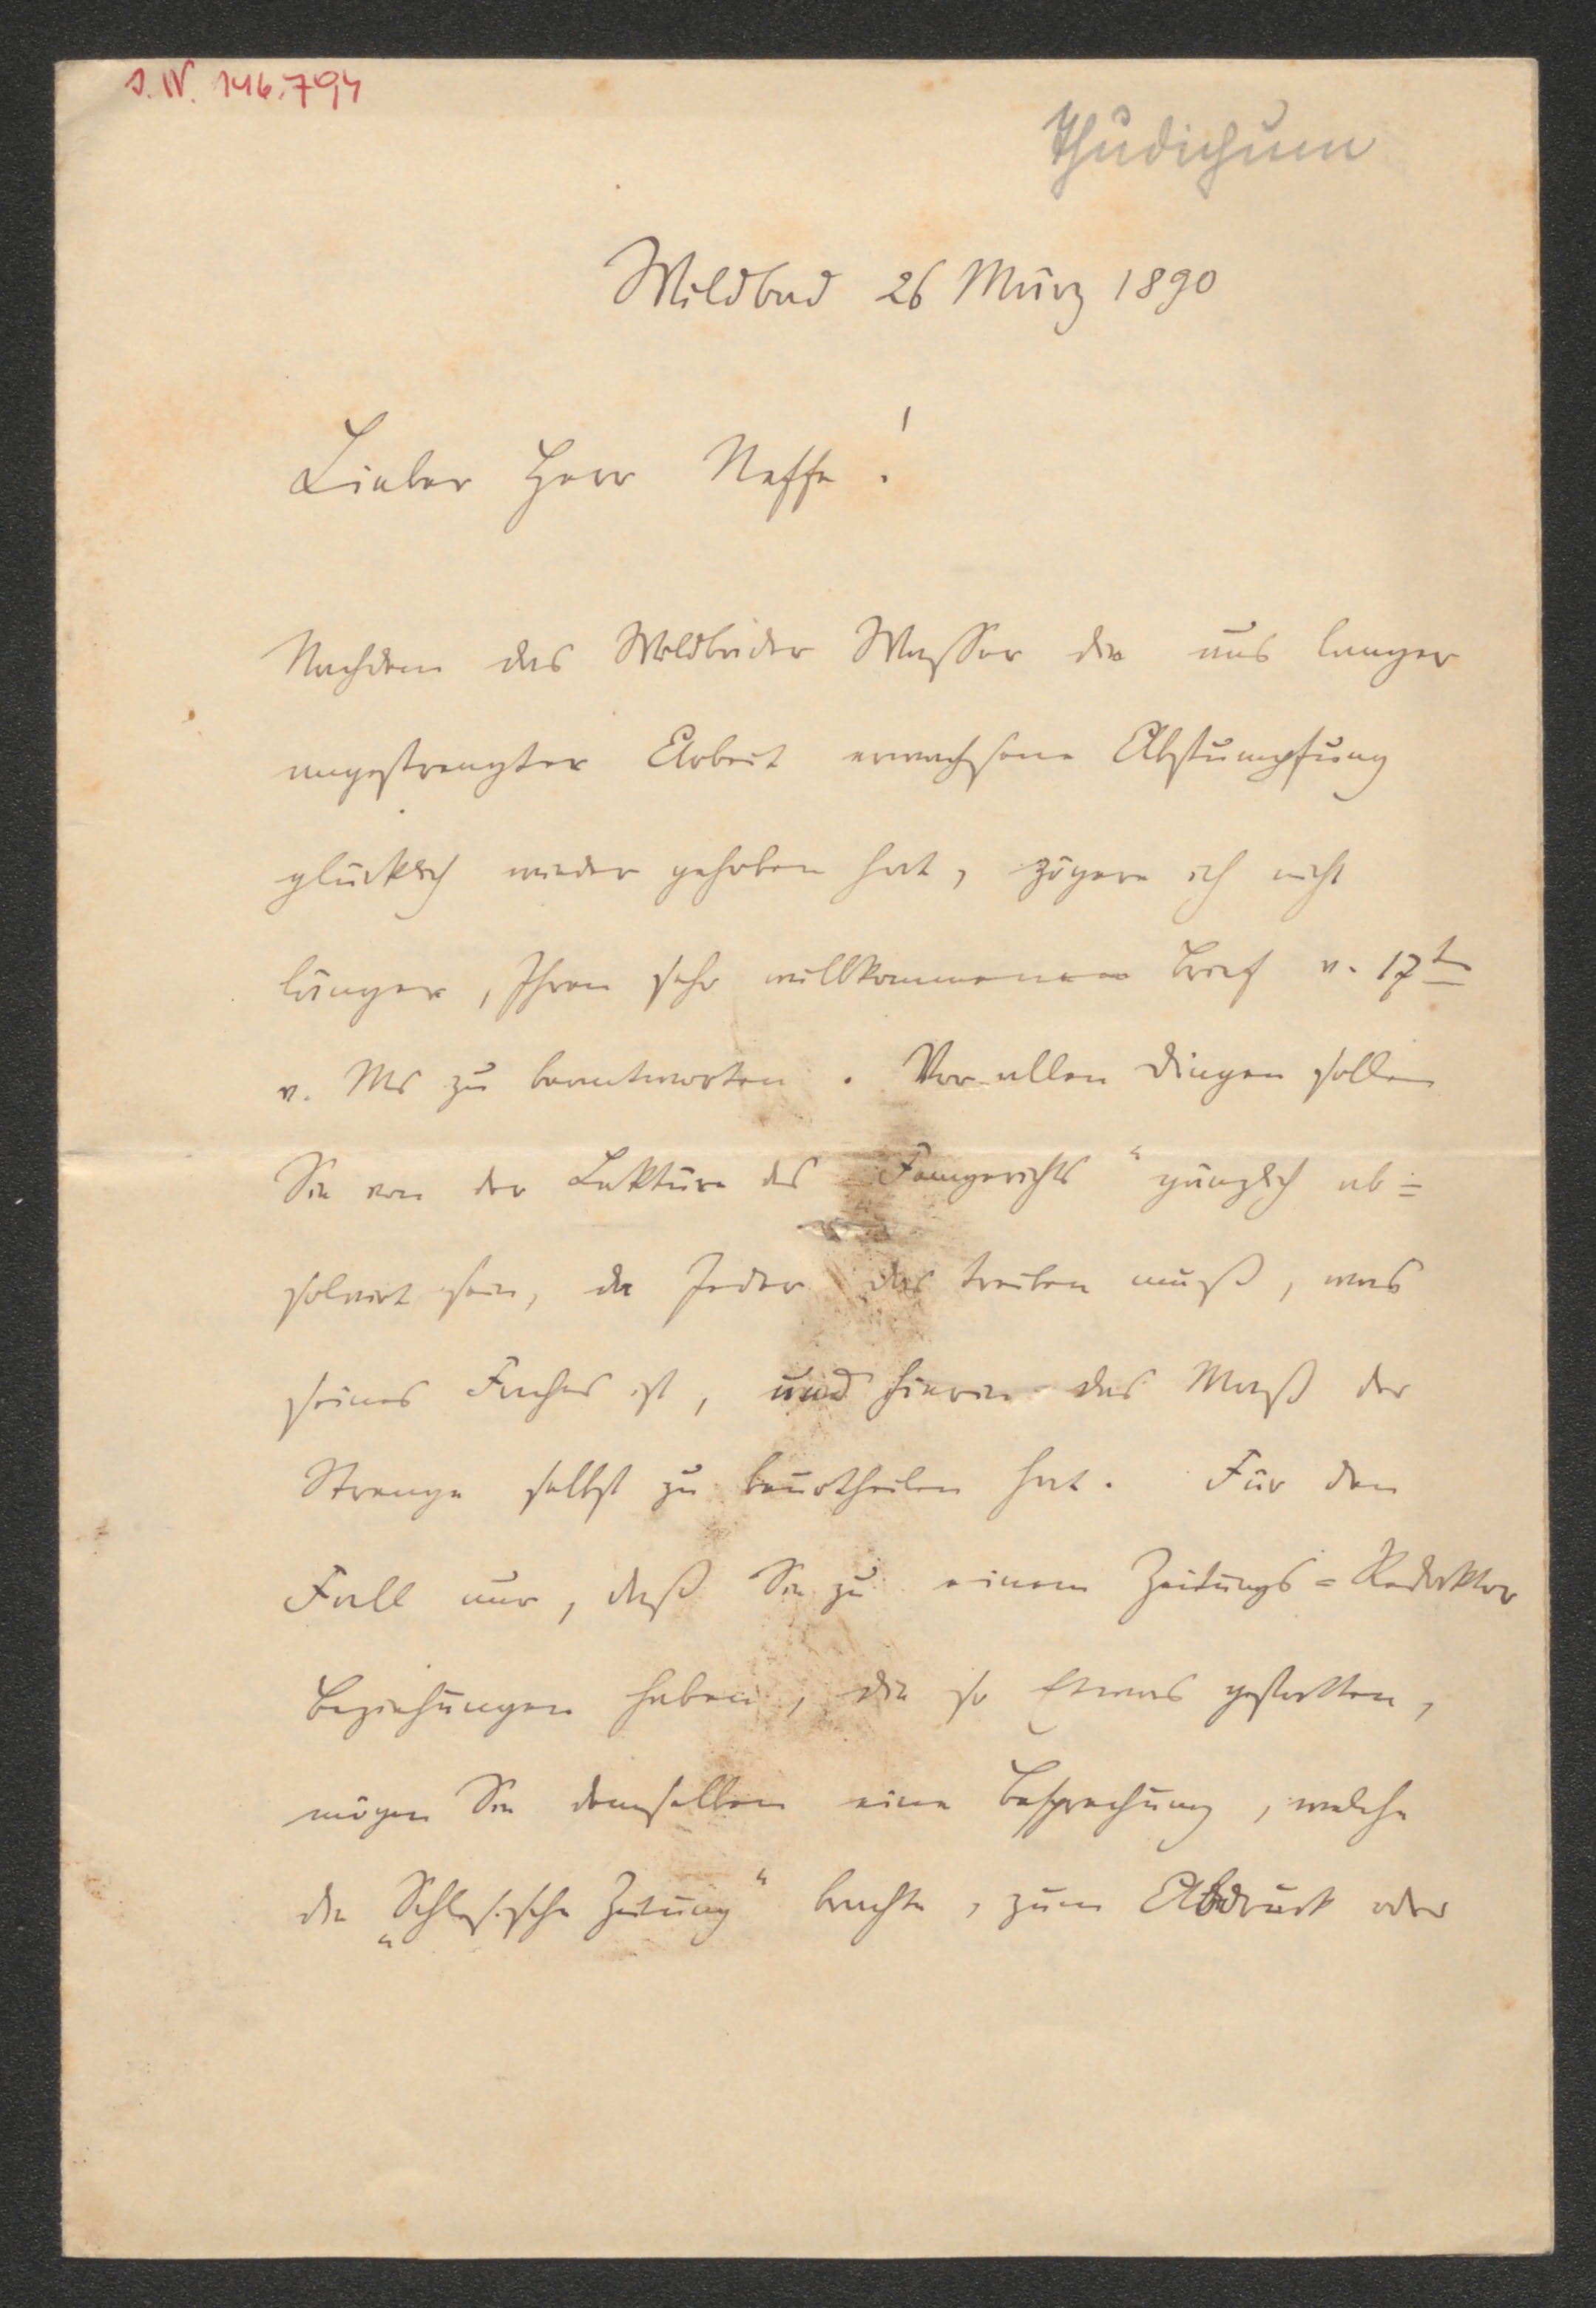 I. N. 146.794
Thudichum
Wildbad 26 März 1890
Lieber Herr Neffe!
Nachdem das Wildbader Wasser die aus langer
angestrengter Arbeit erwachsene Abstumpfung
glücklich wieder gehoben hat, zögere ich nicht
länger, Ihren sehr willkommenen Brief v. 17t
v. Ms zu beantworten. Vor allen Dingen sollen
Sie von der Lektüre des Femgerichts“ gänzlich ab=
solvirt sein, da Jeder das treiben muß, was
seines Faches ist, und hierin das Maß der
Strenge selbst zu beurtheilen hat. Für den
Fall nur, daß Sie zu einem Zeitungs=Redaktor
Beziehungen haben, die so Etwas gestatten,
mögen Sie demselben eine Besprechung, welche
die „Schlesische Zeitung“ brachte, zum Abdruck oder